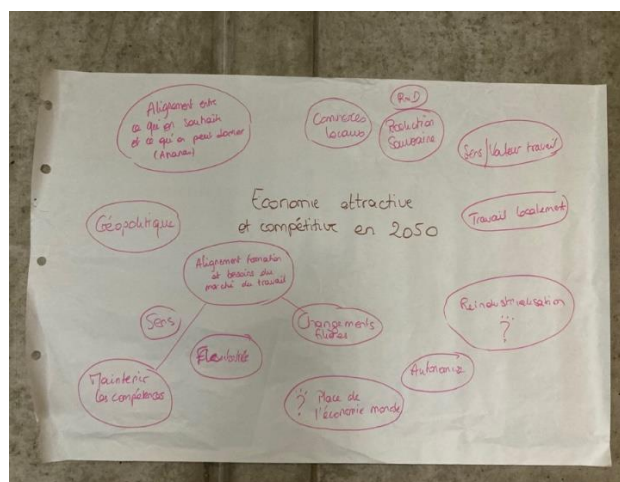 Alignement entre
ce qu'on souhaite
et ce qu'on peut donner
Commerces
locaux
RnD
Production
Souveraine
Sens/Valeur travail
Géopolitique
Economie attractive
et compétitive en 2050
Travail localement
Alignement formation
et besoins du
marché du travail
Sens
Changements
filières
Reindustrialisation
?
Flexibilité
Maintenir
les compétences
Autonomie
? Place de
l'économie monde